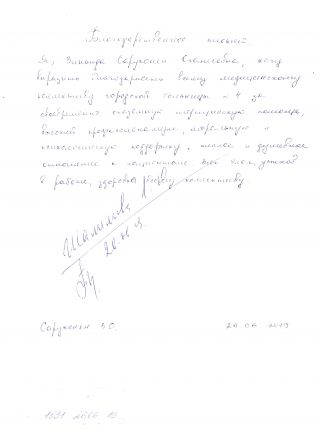 Благодарственное письмо.
Я, Зинаида Саруханян, хочу
выразить благодарность вашему медицинскому
коллективу городской больницы № 4 за
своевременно оказанную медицинскую помощь,
высокий профессионализм, моральную и
психологическую поддержку, теплое и душевное
отношение к пациентам. Всех благ, успехов
в работе, здоровья всему коллективу.
Саруханян З.О. 20.06.2019
1531 20.06.19